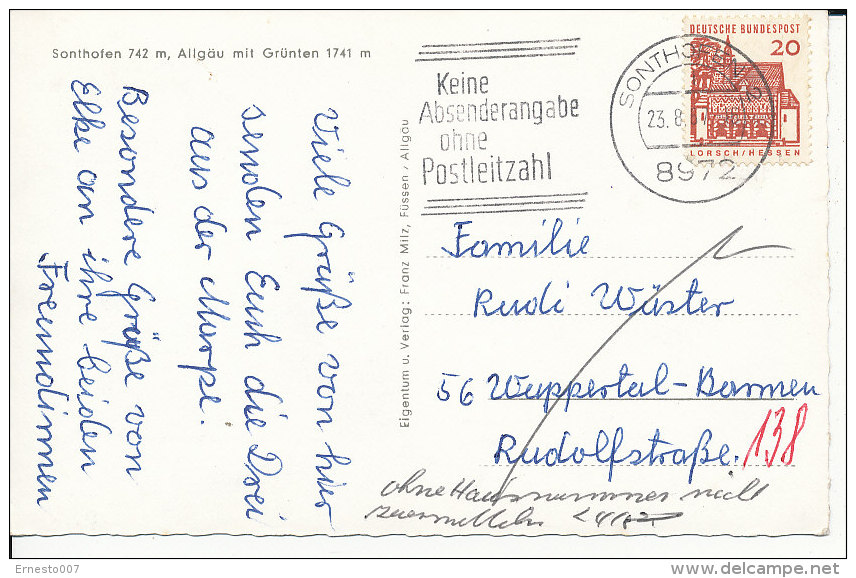 Sonthofen 742 m, Allgäu mit Grünten 1741 m
Viele Grüße von hier
senden Euch die Drei
aus der Marpe.
Besondere Grüße von
Elke an ihre beiden
Freundinnen
Eigentum u. Verlag: Franz Milz, Füssen / Allgäu
Keine
Absenderangabe
ohne
Postleitzahl
SONTHOFEN
23.8.
8972
DEUTSCHE BUNDESPOST
20
LORSCH/HESSEN
Familie
Rudi Wüster
56 Wuppertal-Barmen
Rudolfstraße. 138
ohne Hausnummer nicht
zu ermitteln
Ernesto007
www.delcampe.net